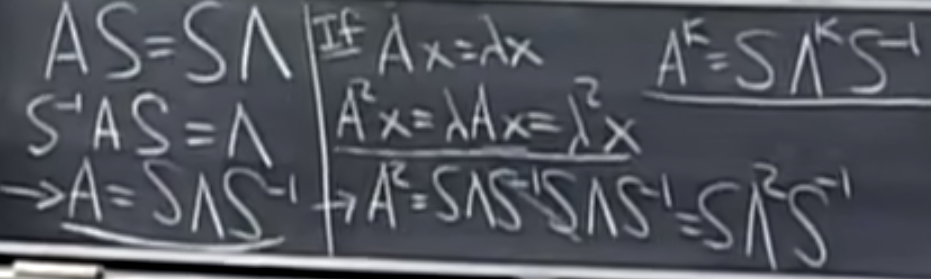 AS=SΛ
S⁻¹AS=Λ
→A=SΛS⁻¹
If Ax=λx
A²x=λAx=λ²x
→A²=SΛS⁻¹SΛS⁻¹=SΛ²S⁻¹
Aᴷ=SΛᴷS⁻¹